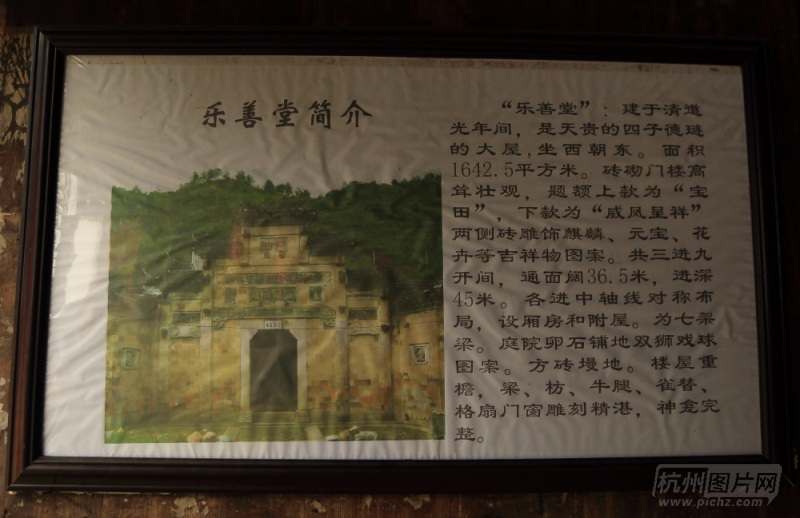 乐善堂简介
“乐善堂”：建于清道
光年间，是天贵的四子德琏
的大屋，坐西朝东。面积
1642.5平方米。砖砌门楼高
耸壮观，题额上款为“宝
田”，下款为“威凤呈祥”
两侧砖雕饰麒麟、元宝、花
卉等吉祥物图案。共三进九
开间，通面阔36.5米，进深
45米。各进中轴线对称布
局，设厢房和附屋。为七架
梁。庭院卵石铺地双狮戏球
图案。方砖墁地。楼屋重
檐，梁、枋、牛腿、雀替、
格扇门窗雕刻精湛，神龛完
整。
杭州图片网
www.pichz.com